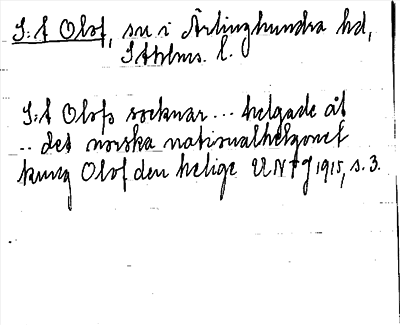 S:t Olof, sn i Ärlinghundra hd,
Sthlms. l.
S:t Olofs socknar ... helgade åt
.. det norska nationalhelgonet
kung Olof den helige UNT 1915, s. 3.